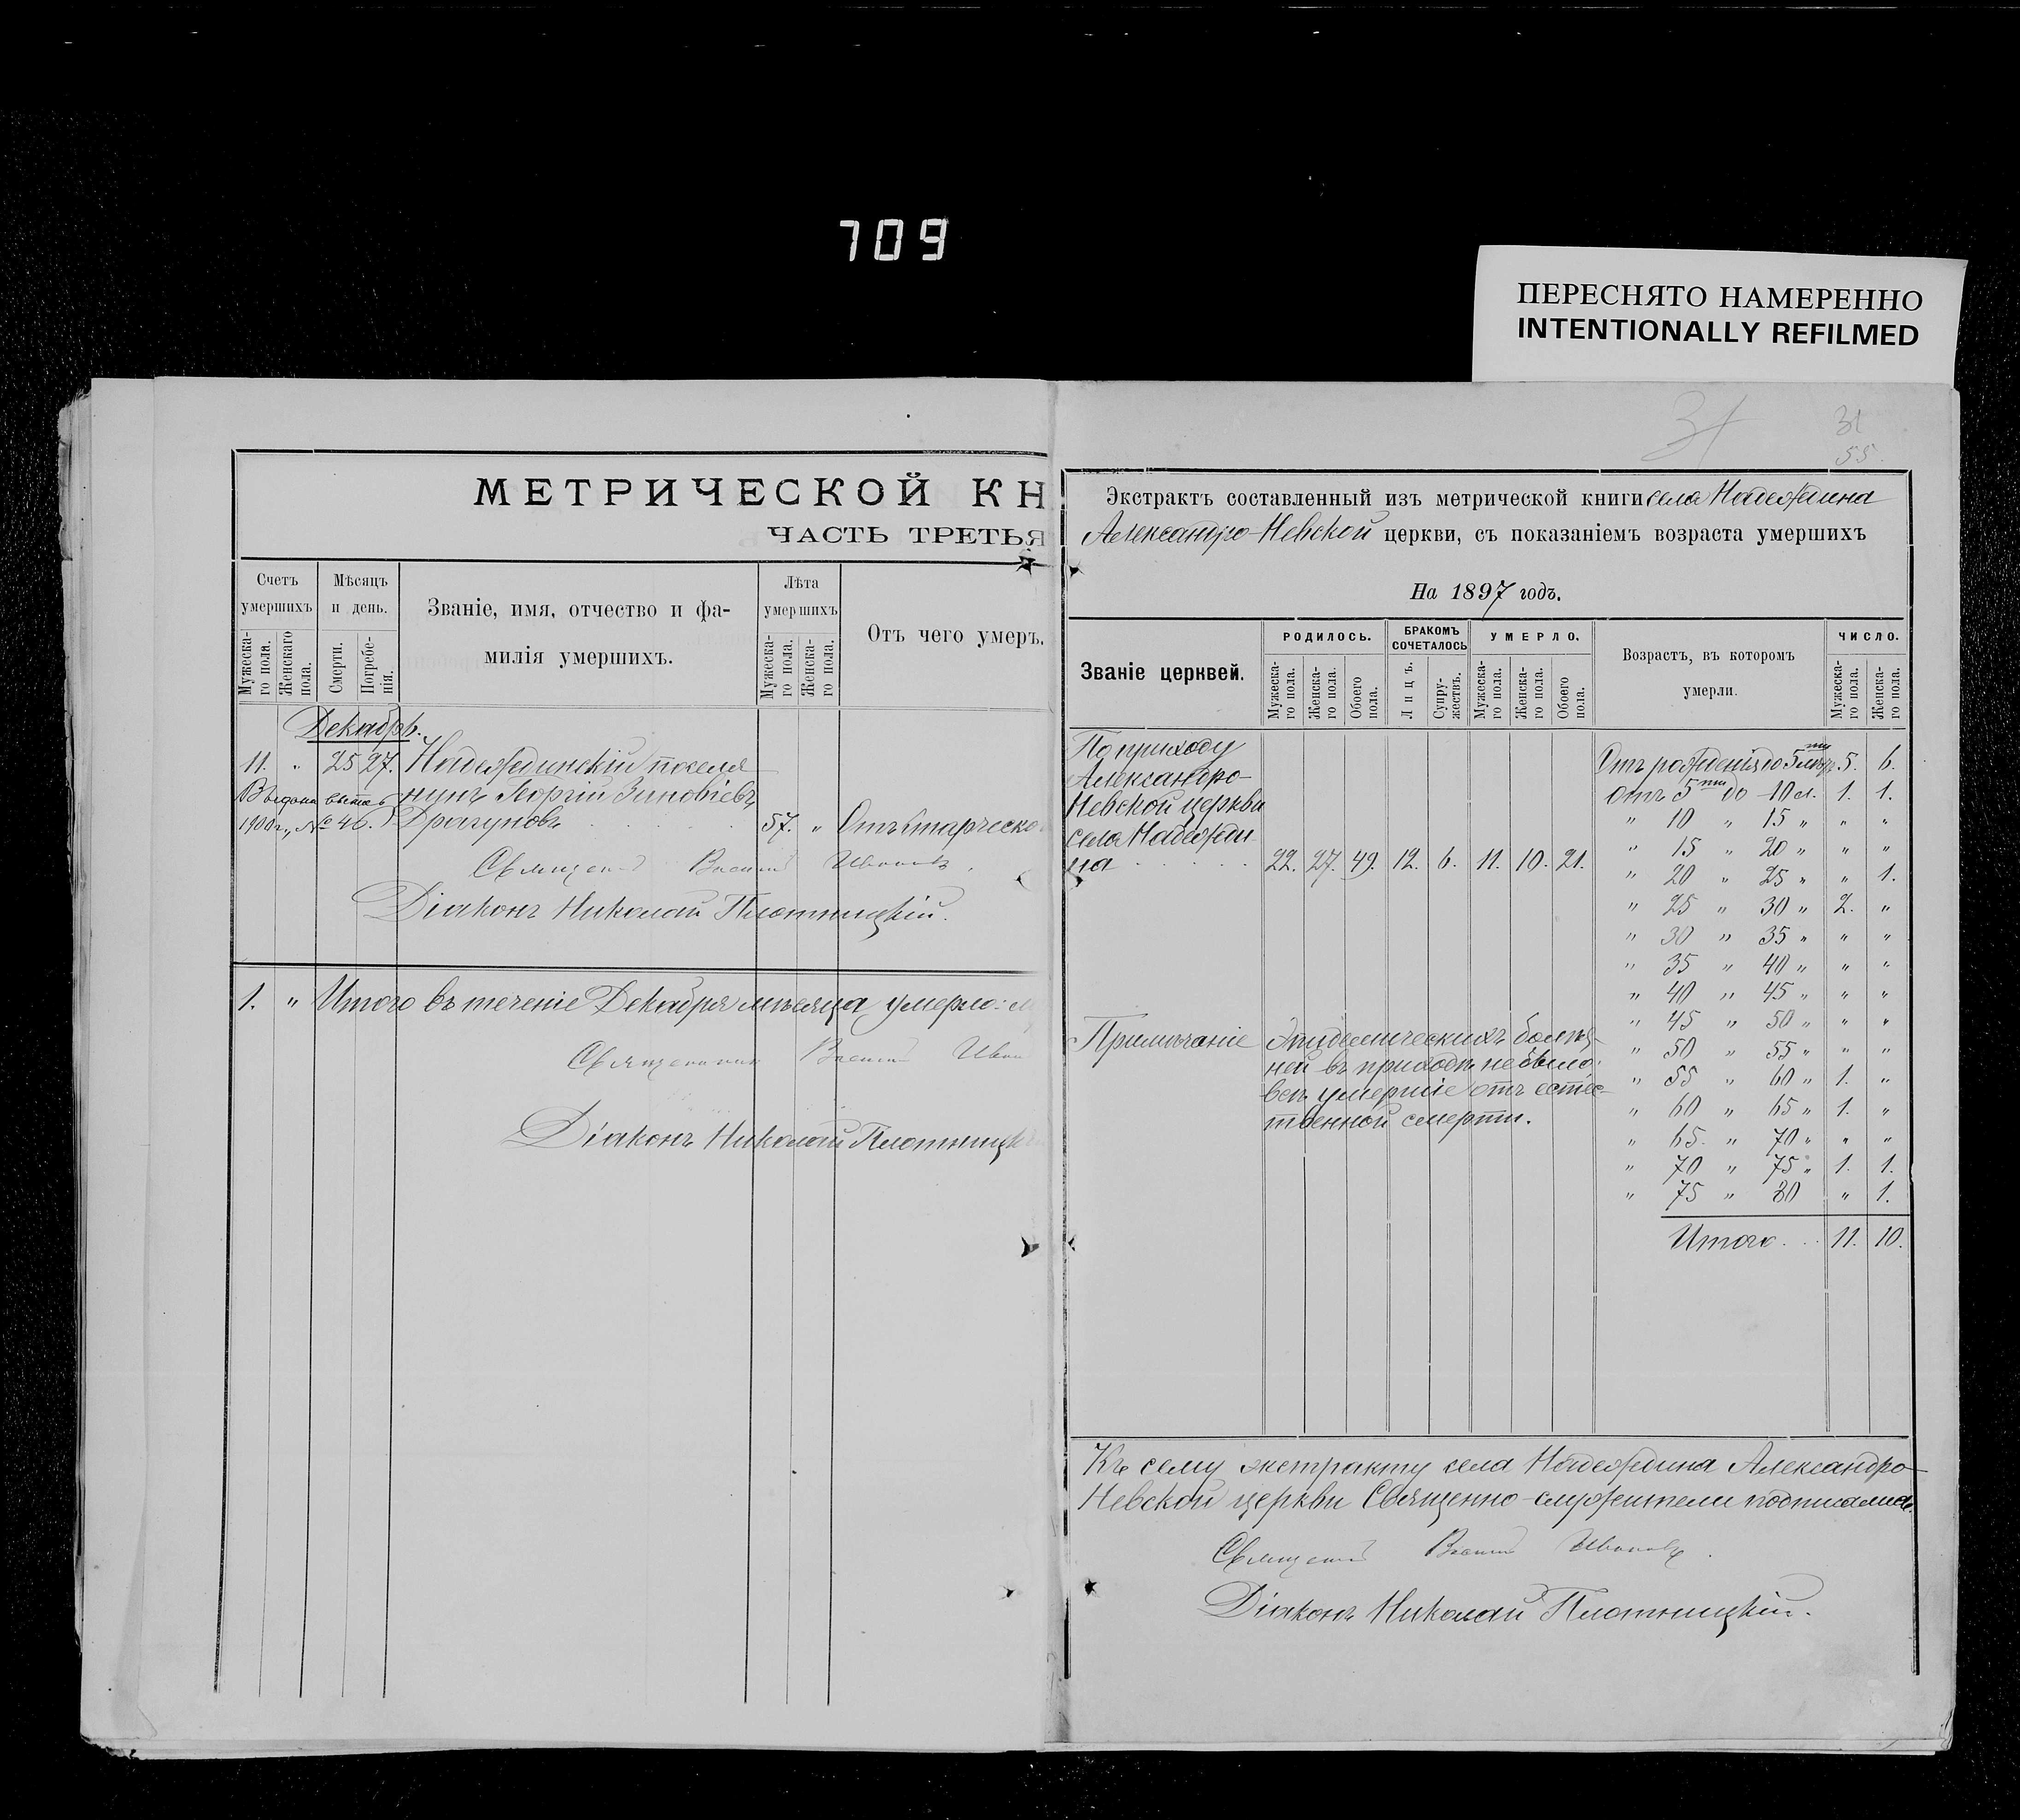 709
ПЕРЕСНЯТО НАМЕРЕННО
INTENTIONALLY REFILMED
МЕТРИЧЕСКОЙ КН
ЧАСТЬ ТРЕТЬЯ
Счетъ умершихъ
Мужеска-го пола.
Женскаго пола.
Мѣсяцъ и день.
Смерти.
Погребе-нія.
Званіе, имя, отчество и фа-
милія умершихъ.
Лѣта умершихъ
Мужеска-го пола.
Женска-го пола.
Отъ чего умеръ.
Декабрь.
11. " 25 27. Надеждинскій поселя
нинъ Георгій Зиновіевъ
1900 г., № 46. Драгуновъ 57. " Отъ старческо
Священникъ Василій Ивановъ.
Діаконъ Николай Плотницкій.
1. " Итого въ теченіе Декабря мѣсяца умерло: м
Священникъ Василій Иван
Діаконъ Николай Плотницкі
31
31
55.
Экстрактъ составленный изъ метрической книги села Надеждина
Александро-Невской церкви, съ показаніемъ возраста умершихъ
На 1897 годъ.
Званіе церквей.
РОДИЛОСЬ.
Мужеска-го пола.
Женска-го пола.
Обоего пола.
БРАКОМЪ СОЧЕТАЛОСЬ
Лицъ.
Супру-жествъ.
УМЕРЛО.
Мужеска-го пола.
Женска-го пола.
Обоего пола.
Возрастъ, въ которомъ
умерли.
ЧИСЛО.
Мужеска-го пола.
Женска-го пола.
По приходу
Александро-
Невской церкви
села Надежди-
на 22. 27. 49. 12. 6. 11. 10. 21.
Отъ рожденія до 5ти 5. 6.
Отъ 5ти до 10 л. 1. 1.
" 10 " 15 " " "
" 15 " 20 " " "
" 20 " 25 " " 1.
" 25 " 30 " 2. "
" 30 " 35 " " "
" 35 " 40 " " "
" 40 " 45 " " "
" 45 " 50 " " "
" 50 " 55 " " "
" 55 " 60 " 1. "
" 60 " 65 " 1. "
" 65. " 70 " " "
" 70 " 75 " 1. 1.
" 75 " 80 " 1.
Итого 11. 10.
Примѣчаніе Эпидемическихъ болѣз-
ней въ приходѣ не было:
всѣ умершіе отъ естес-
твенной смерти.
Къ сему экстракту села Надеждина Александро-
Невской церкви Священно-служители подписались.
Священникъ Василій Ивановъ.
Діаконъ Николай Плотницкій.